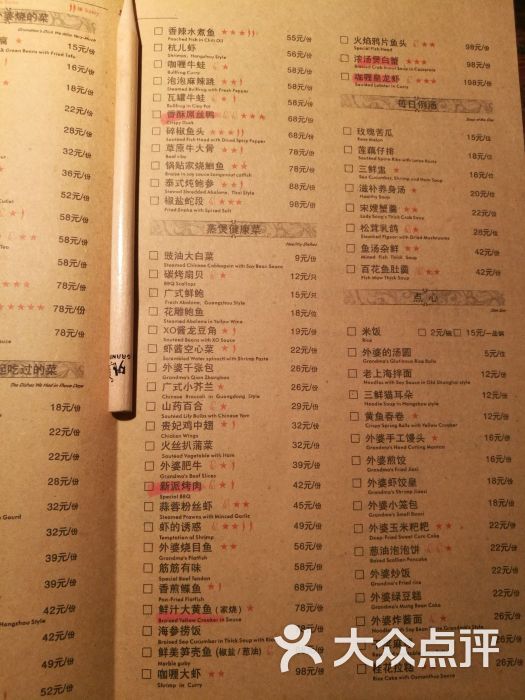 外婆烧的菜
15元/份
16元/份
18元/份
22元/份
28元/份
32元/份
36元/份
52元/份
58元/份
58元/份
58元/份
78元/份
78元/份
78元/份
起吃过的菜
The Dishes We Had in Those Days
18元/份
22元/份
22元/份
28元/份
32元/份
32元/份
39元/份
39元/份
42元/份
42元/份
49元/份
52元/份
香辣水煮鱼 55元/份
Poached Fish in Chili Oil
杭儿虾 56元/份
Shrimps, Hangzhou Style
咖喱牛蛙 58元/份
Bullfrog Curry
泡泡麻辣跳 58元/份
Steamed Bullfrog with Fresh Pepper
瓦罐牛蛙 58元/份
Bullfrog in Clay Pot
香酥原丝鸭 68元/份
Crispy Duck
碎椒鱼头 68元/份
Steamed Fish Head with Dried Spicy Pepper
草原牛大骨 78元/份
Beef ribs
锅贴家烧鮰鱼 78元/份
Braise in soy sauce Longsnout catfish
泰式炖鲍参 88元/份
Stewed Shredded Abalone, Thai Style
椒盐蛇段 98元/份
Fried Snake with Spiced Salt
蒸煲健康菜
Healthy Dishes
豉油大白菜 9元/份
Steamed Chinese Cabbage with Soy Bean Sauce
碳烤扇贝 12元/只
BBQ Scallops
广式鲜鲍 15元/只
Fresh Abalone, Guangzhou Style
花雕鲍鱼 18元/只
Steamed Abalone in Yellow Wine
XO酱龙豆角 19元/份
Sauteed Beans with XO Sauce
虾酱空心菜 22元/份
Scrambled Water spinach with Shrimp Paste
外婆千张包 26元/份
Grandma's Qian Zhangbao
广式小芥兰 26元/份
Chinese Broccoli in Guangdong Style
山药百合 28元/份
Sauteed Lily Bulbs with Chinese Yam
贵妃鸡中翅 32元/份
Chicken Wings
火丝扒蒲菜 32元/份
Sauteed Vegetable with Ham
外婆肥牛 39元/份
Grandma's Beef Slices
新派烤肉 42元/份
Special BBQ
蒜蓉粉丝虾 45元/份
Steamed Prawns with Minced Garlic
虾的诱惑 49元/份
Temptation of Shrimp
外婆烧目鱼 56元/份
Grandma's Flatfish
筋筋有味 58元/份
Special Beef Tendon
香煎鲽鱼 68元/份
Pan-Fried Flatfish
鲜汁大黄鱼(家烧) 78元/份
Braised Yellow Croaker in Sauce
海参捞饭
鲜美笋壳鱼(椒盐/葱油)
Marble goby
咖喱大虾 98元/份
Shrimp in Curry
火焰鸦片鱼头 98元/份
Special Fish Head
浓汤煲白蟹 98元/份
咖喱皇龙虾 198元/份
Sauteed Lobster in Curry
每日例酒
玫瑰苦瓜 15元/份
莲藕仔排 18元/份
三鲜盅 16元/份
滋补养身汤 20元/份
Healthy Soup
宋嫂蟹羹 22元/份
松茸乳鸽 28元/份
鱼汤杂鲜 42元/份
Mixed Fish Thick Soup
百花鱼肚羹 42元/份
Fish Maw Thick Soup
点心
Dim Sum
米饭 2元/碗 15元/一盆锅
Rice
外婆的汤圆 5元/份
Grandma's Glutinous Rice Balls
老上海拌面 12元/份
Noodles with Soy Sauce in Old Shanghai style
三鲜猫耳朵 12元/份
Noodle Soup in Hangzhou style
黄鱼春卷 12元/份
Crispy Spring Rolls with Yellow Croaker
外婆手工馒头 16元/份
外婆煎饺 16元/份
Grandma's Fried Jiaozi
外婆虾饺皇 18元/份
Grandma's Shrimp Jiaozi
外婆小笼包 18元/份
外婆玉米粑粑 22元/份
Deep-Fried Sweet Corn Cake
葱油泡泡饼 22元/份
Baked Scallion Pancake
外婆炒饭 22元/份
Grandma's Fried rice
外婆绿豆糕 22元/份
Grandma's Mung Bean Cake
外婆炸酱面 26元/份
桂花拉糕
Rice Cake with Osmanthus Sauce
大众点评